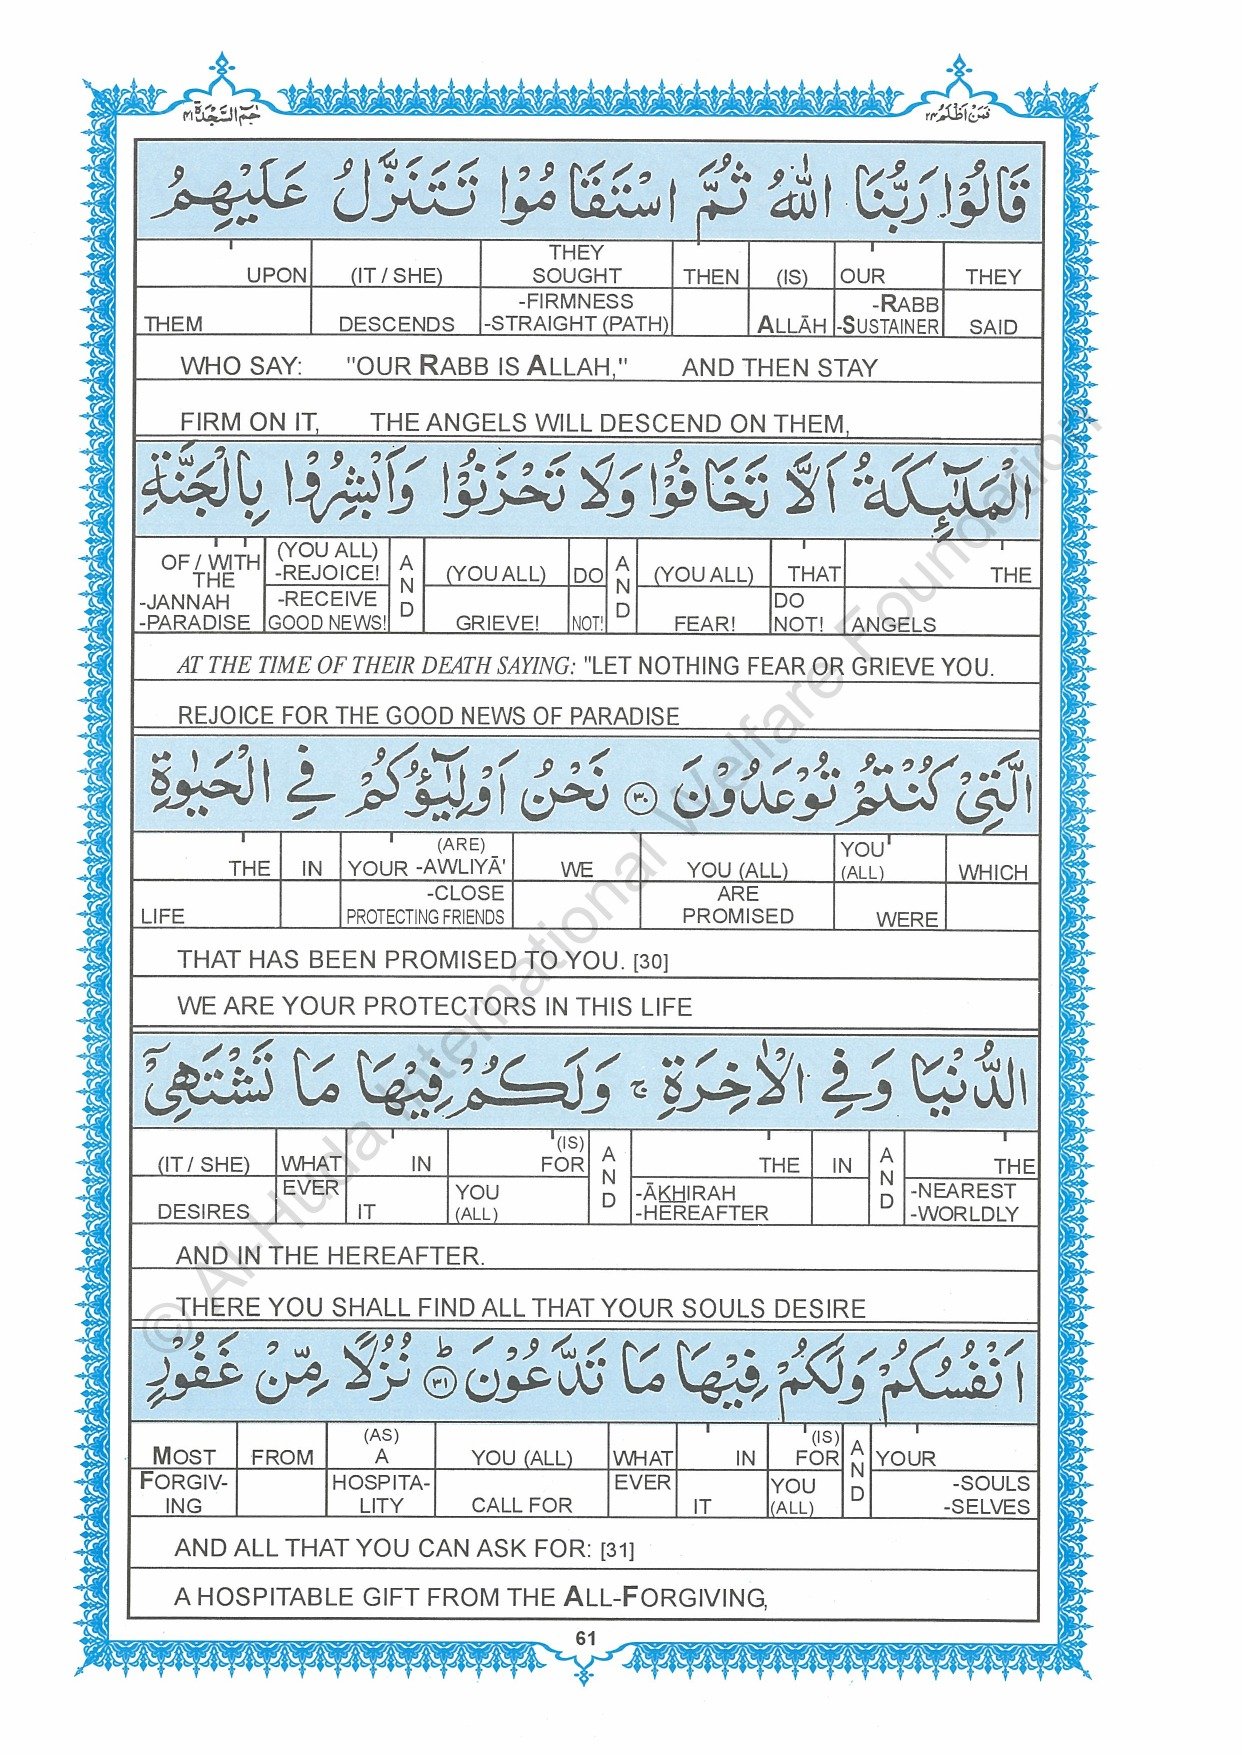 حٰمٓ السَّجْدَة ٤١
فَمَنْ اَظْلَمُ ٢٤
قَالُوْا رَبُّنَا اللّٰهُ ثُمَّ اسْتَقَامُوْا تَتَنَزَّلُ عَلَيْهِمُ
UPON (IT / SHE) THEY SOUGHT THEN (IS) OUR THEY
THEM DESCENDS -FIRMNESS -STRAIGHT (PATH) ALLĀH -RABB -SUSTAINER SAID
WHO SAY: "OUR RABB IS ALLAH," AND THEN STAY
FIRM ON IT, THE ANGELS WILL DESCEND ON THEM,
الْمَلٰٓئِكَةُ اَلَّا تَخَافُوْا وَلَا تَحْزَنُوْا وَاَبْشِرُوْا بِالْجَنَّةِ
OF / WITH THE (YOU ALL) -REJOICE! AND (YOU ALL) DO AND (YOU ALL) THAT THE
-JANNAH -PARADISE -RECEIVE GOOD NEWS! GRIEVE! NOT! FEAR! DO NOT! ANGELS
AT THE TIME OF THEIR DEATH SAYING: "LET NOTHING FEAR OR GRIEVE YOU.
REJOICE FOR THE GOOD NEWS OF PARADISE
الَّتِيْ كُنْتُمْ تُوْعَدُوْنَ ٣٠ نَحْنُ اَوْلِيٰٓؤُكُمْ فِي الْحَيٰوةِ
THE IN YOUR (ARE) -AWLIYĀ' WE YOU (ALL) YOU (ALL) WHICH
LIFE -CLOSE PROTECTING FRIENDS ARE PROMISED WERE
THAT HAS BEEN PROMISED TO YOU. [30]
WE ARE YOUR PROTECTORS IN THIS LIFE
الدُّنْيَا وَفِي الْاٰخِرَةِ ۚ وَلَكُمْ فِيْهَا مَا تَشْتَهِيْٓ
(IT / SHE) WHAT IN (IS) FOR AND THE IN AND THE
DESIRES EVER IT YOU (ALL) -ĀKHIRAH -HEREAFTER -NEAREST -WORLDLY
AND IN THE HEREAFTER.
THERE YOU SHALL FIND ALL THAT YOUR SOULS DESIRE
اَنْفُسُكُمْ وَلَكُمْ فِيْهَا مَا تَدَّعُوْنَ ؕ ٣١ نُزُلًا مِّنْ غَفُوْرٍ
MOST FROM (AS) A YOU (ALL) WHAT IN (IS) FOR AND YOUR
FORGIV-ING HOSPITA-LITY CALL FOR EVER IT YOU (ALL) -SOULS -SELVES
AND ALL THAT YOU CAN ASK FOR: [31]
A HOSPITABLE GIFT FROM THE ALL-FORGIVING,
61
© Al-Huda International Welfare Foundation